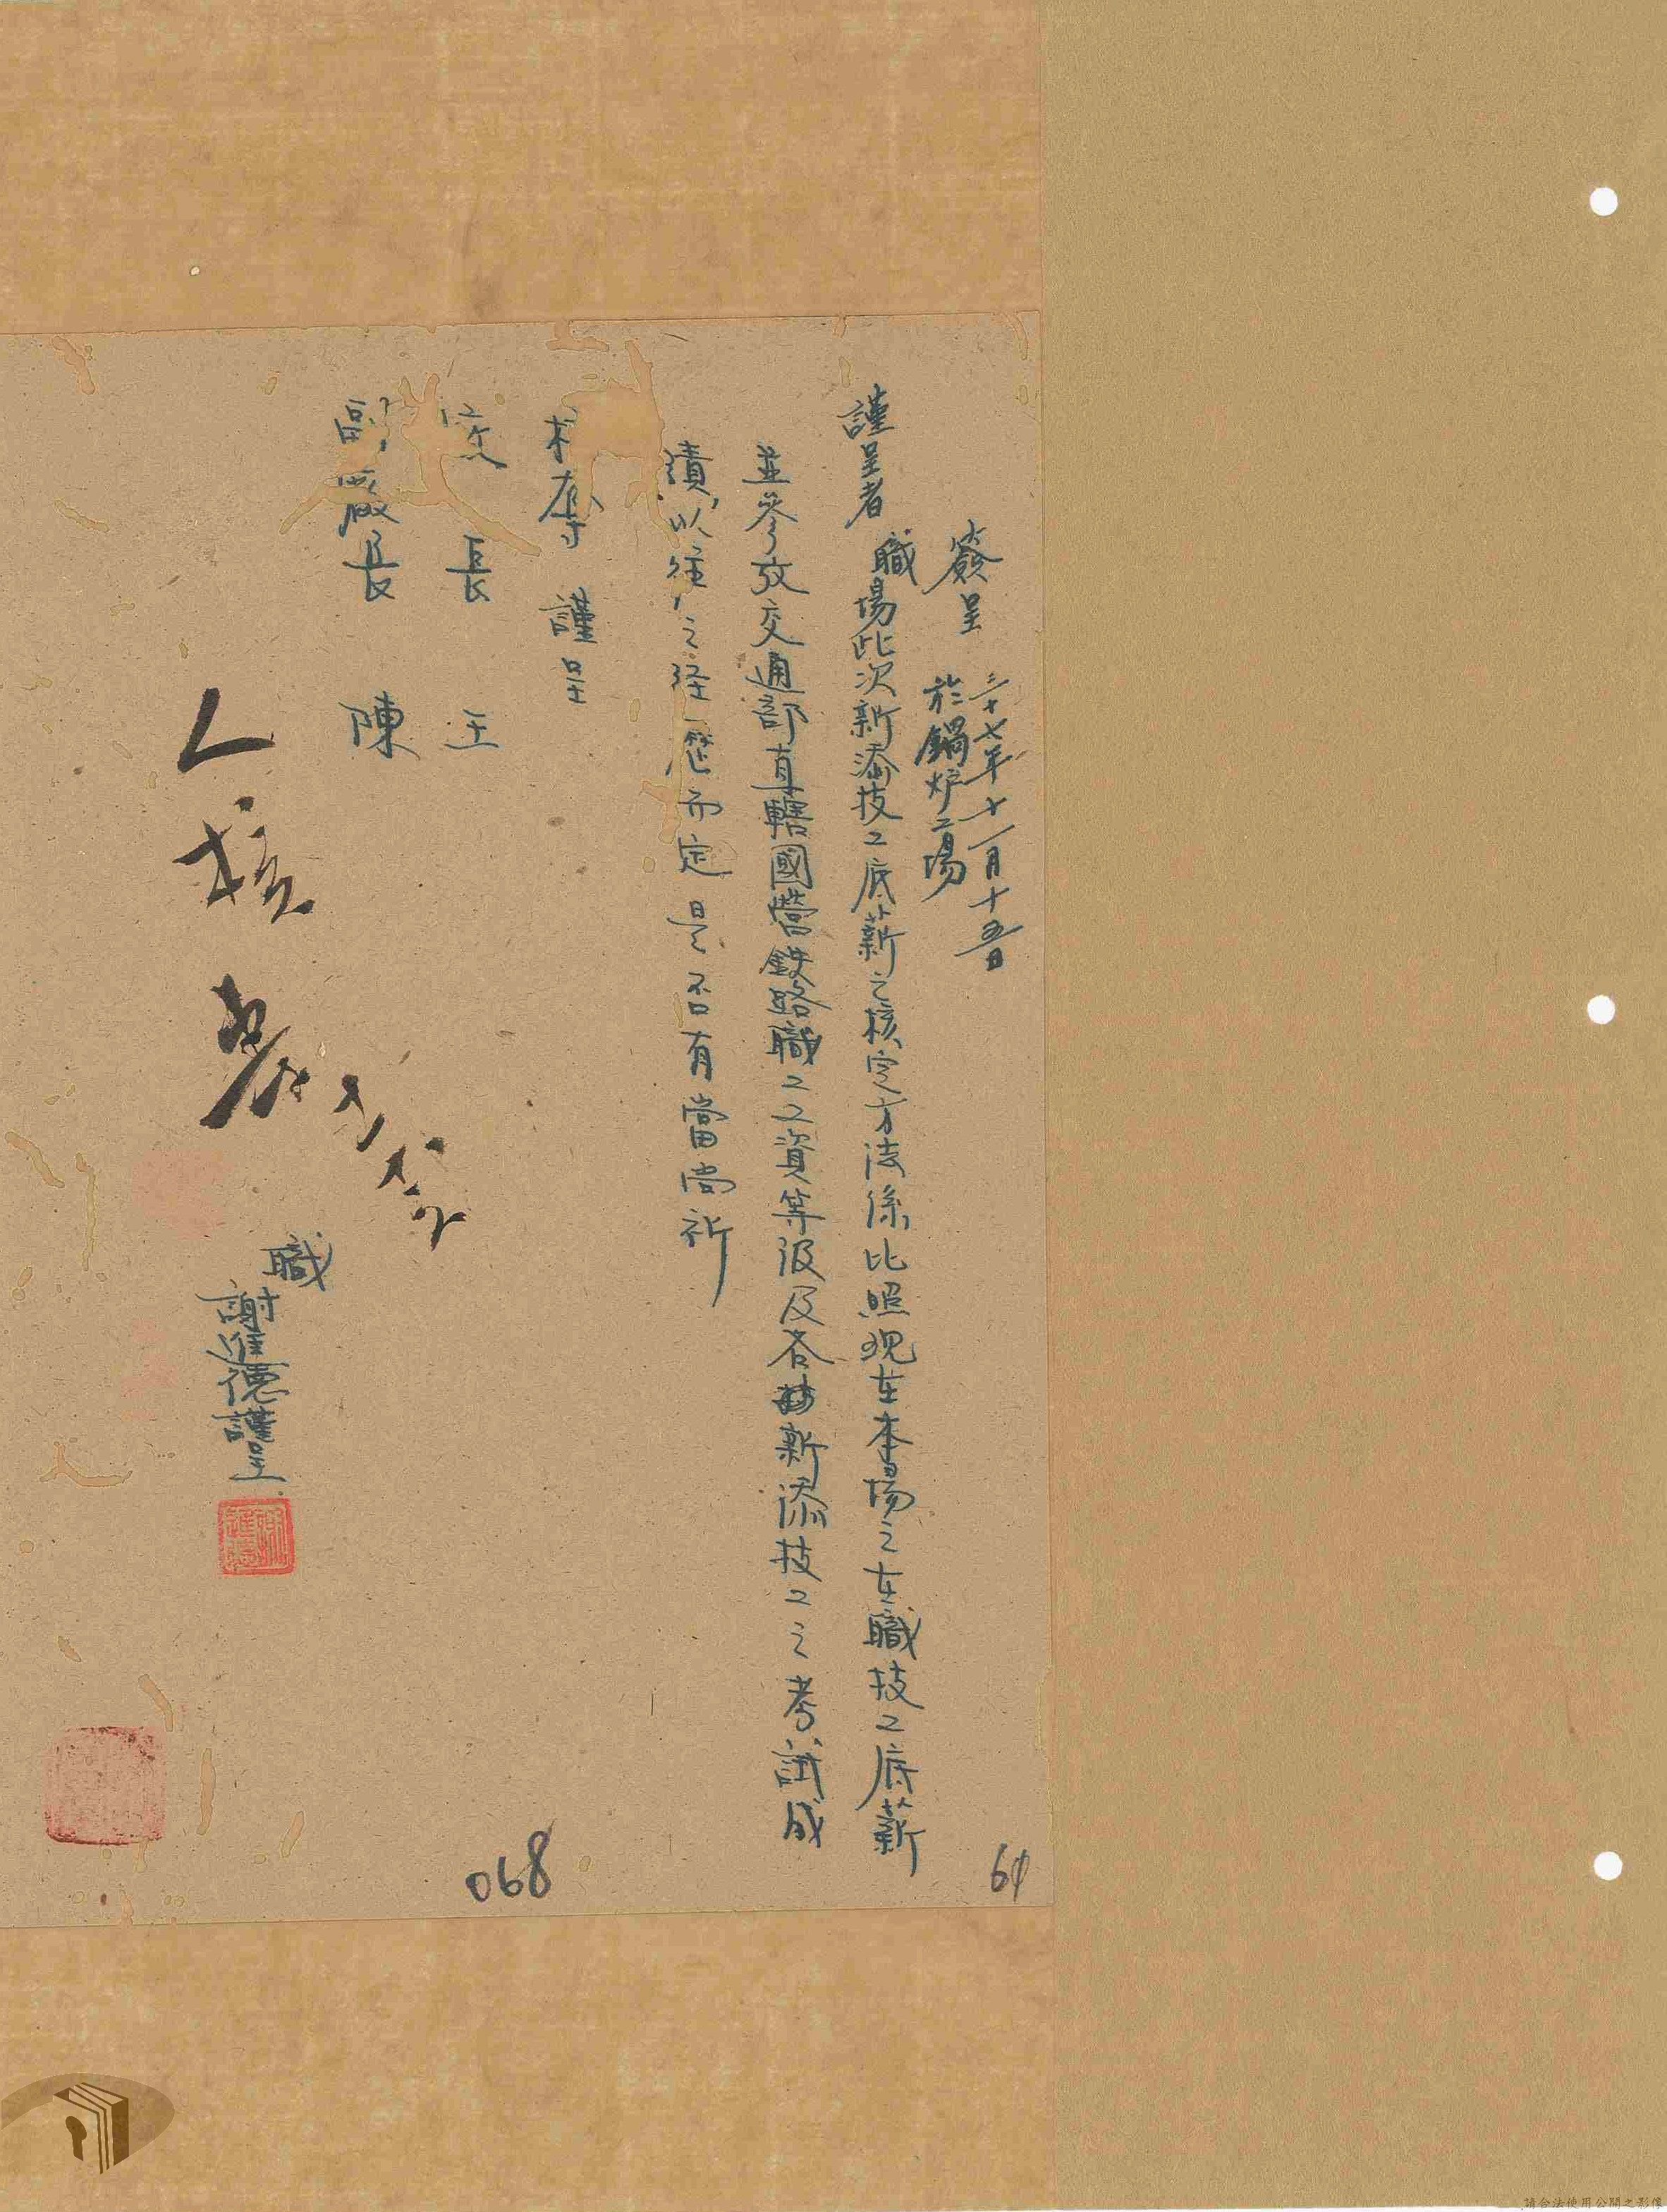 簽呈
三十七年十一月十五日
於鍋炉工場
謹呈者
職場此次新添技工底薪之核定方法係比照現在本場之在職技工底薪
並參攷交通部直轄國營鉄路職工工資等級及各新添技工之考試成
績以往之經歷而定是否有當尚祈
核奪 謹呈
廠長 王
副廠長 陳
職
謝進德謹呈
068
64
請合法使用公開之影像